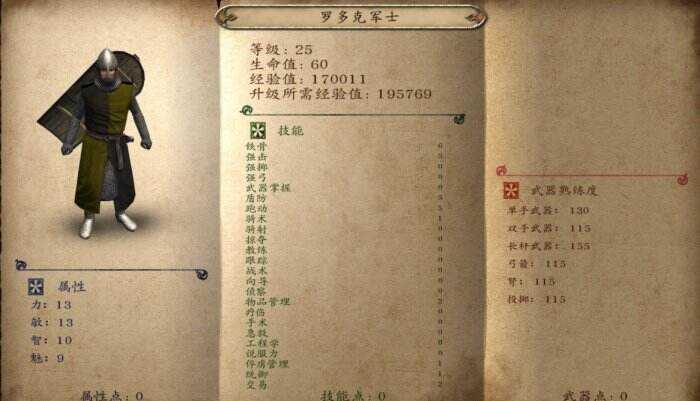 罗多克军士
等级: 25
生命值: 60
经验值: 170011
升级所需经验值: 195769
属性
力: 13
敏: 13
智: 10
魅: 9
属性点: 0
技能
铁骨
强击
强掷
强弓
武器掌握
盾防
跑动
骑术
骑射
掠夺
教练
跟踪
战术
向导
侦察
物品管理
疗伤
手术
急救
工程学
说服力
俘虏管理
统御
交易
技能点: 0
武器熟练度
单手武器: 130
双手武器: 115
长杆武器: 155
弓箭: 115
弩: 115
投掷: 115
武器点: 0